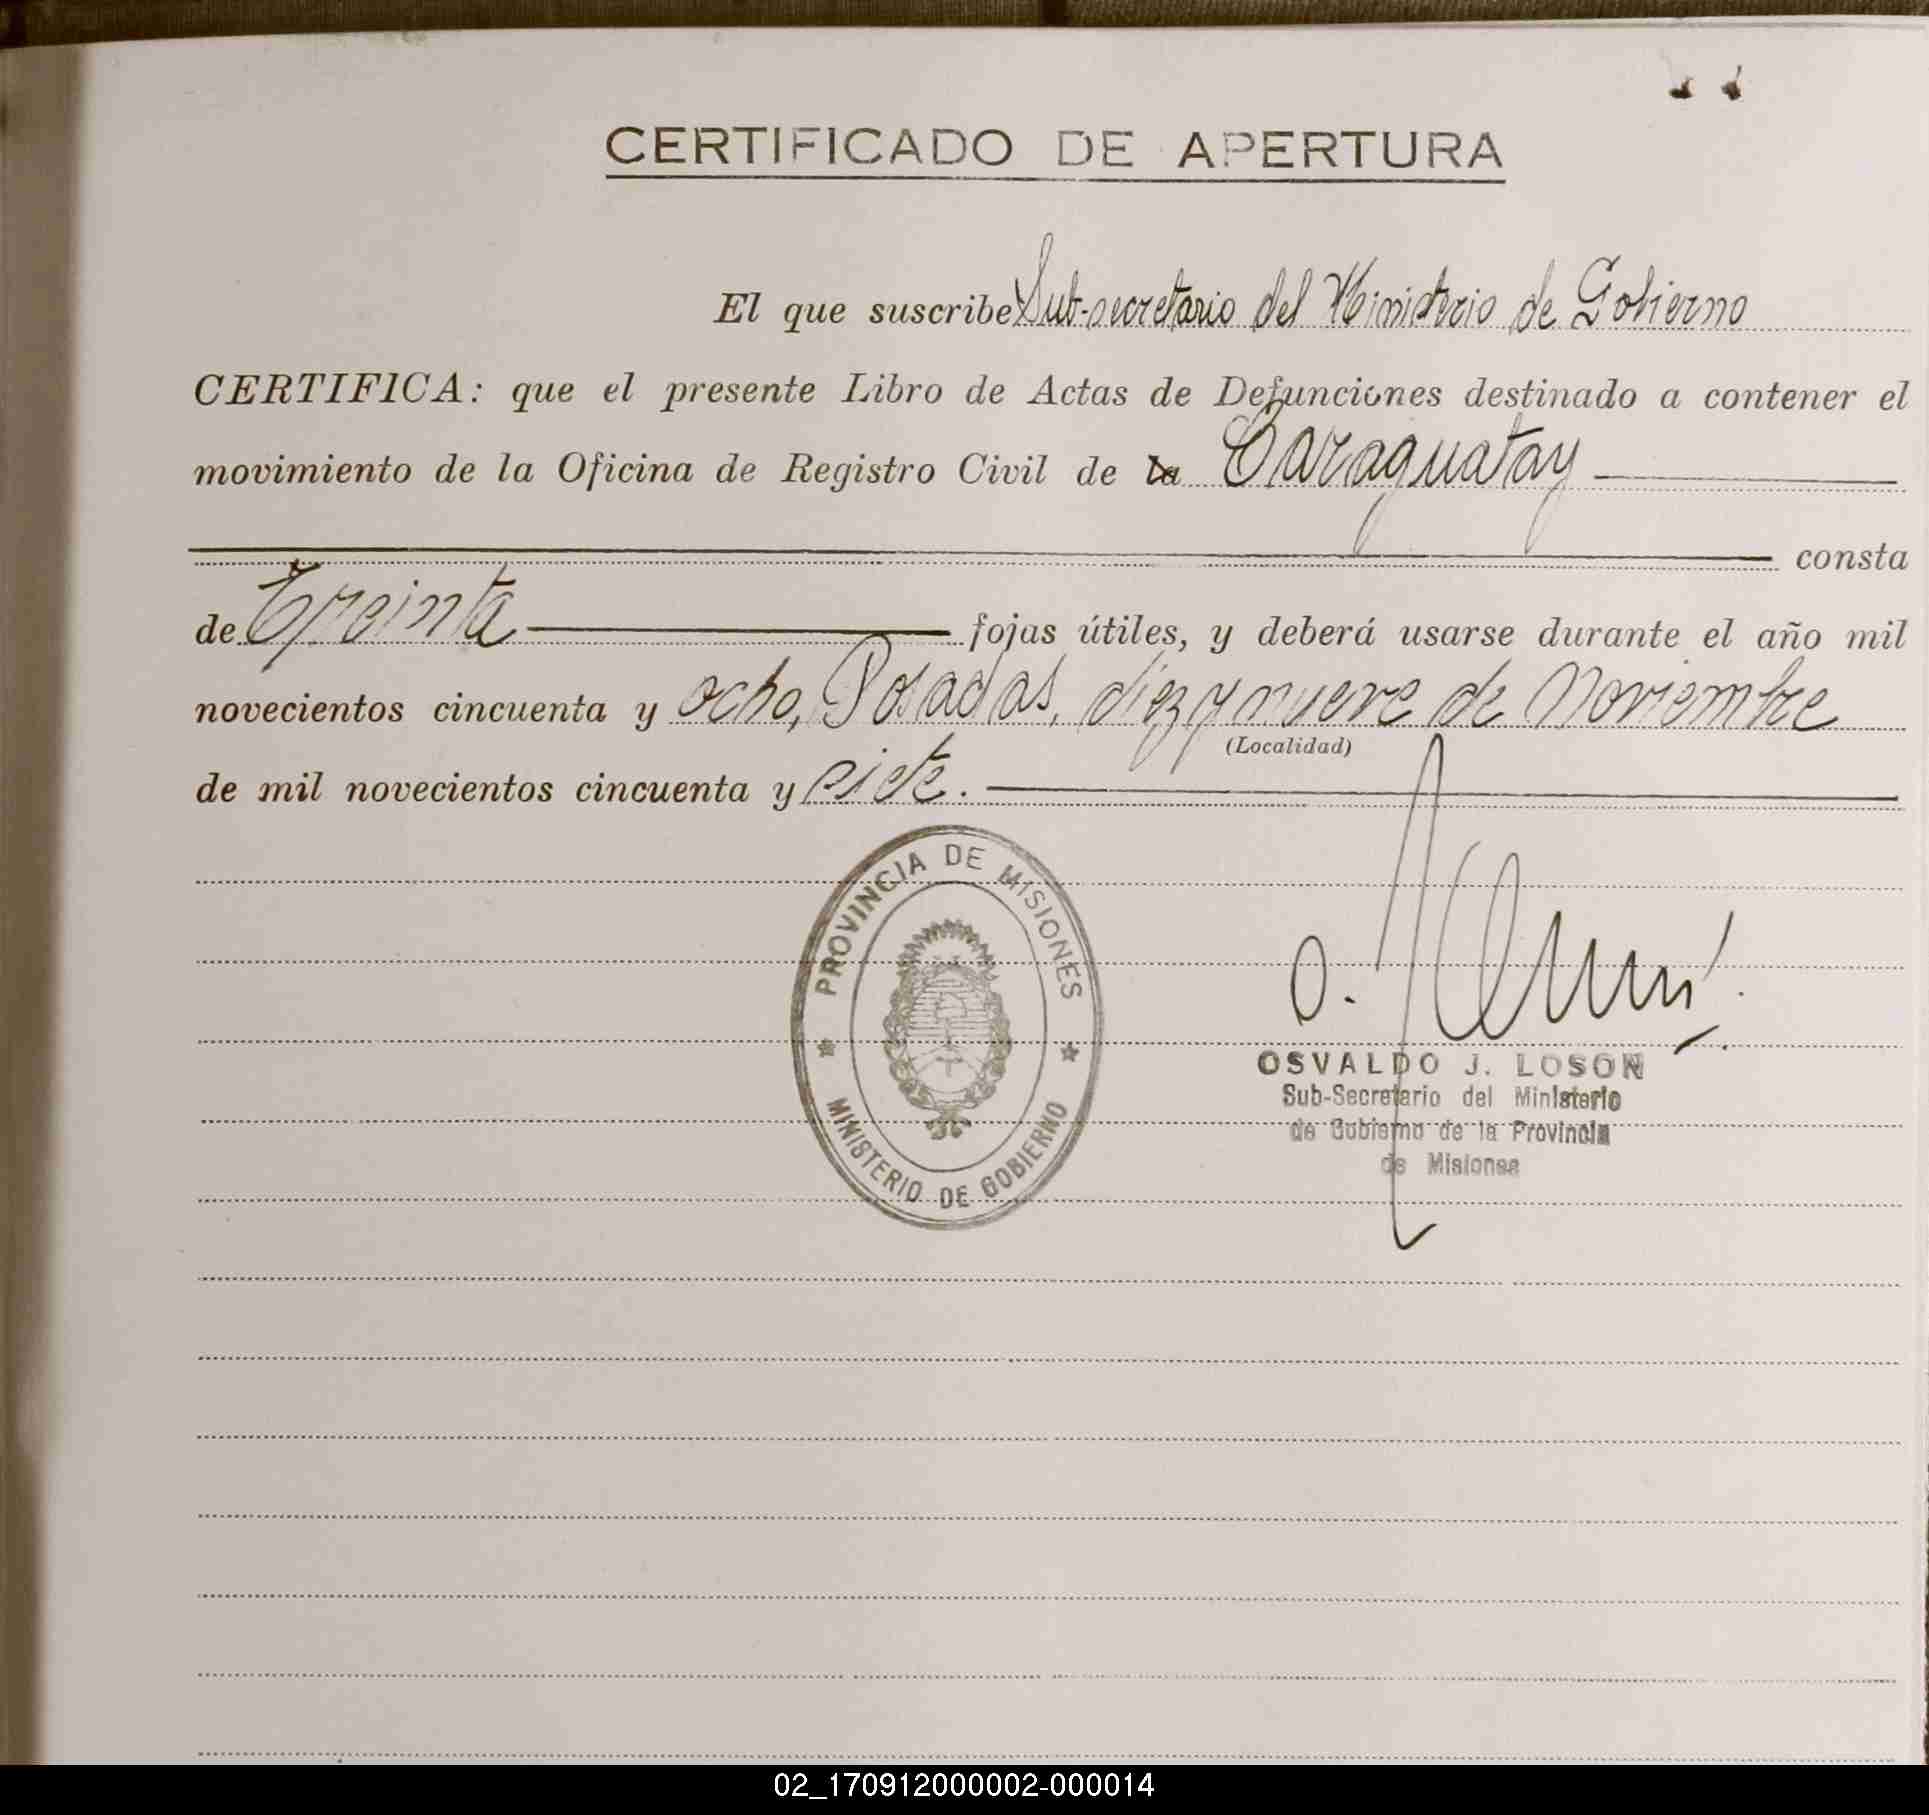 CERTIFICADO DE APERTURA
El que suscribe Sub-secretario del Ministerio de Gobierno
CERTIFICA: que el presente Libro de Actas de Defunciones destinado a contener el
movimiento de la Oficina de Registro Civil de la Caraguatay
consta
de Treinta fojas útiles, y deberá usarse durante el año mil
novecientos cincuenta y ocho, Posadas, diez y nueve de Noviembre
(Localidad)
de mil novecientos cincuenta y siete.
PROVINCIA DE MISIONES
MINISTERIO DE GOBIERNO
OSVALDO J. LOSON
Sub-Secretario del Ministerio
de Gobierno de la Provincia
de Misiones
02_170912000002-000014